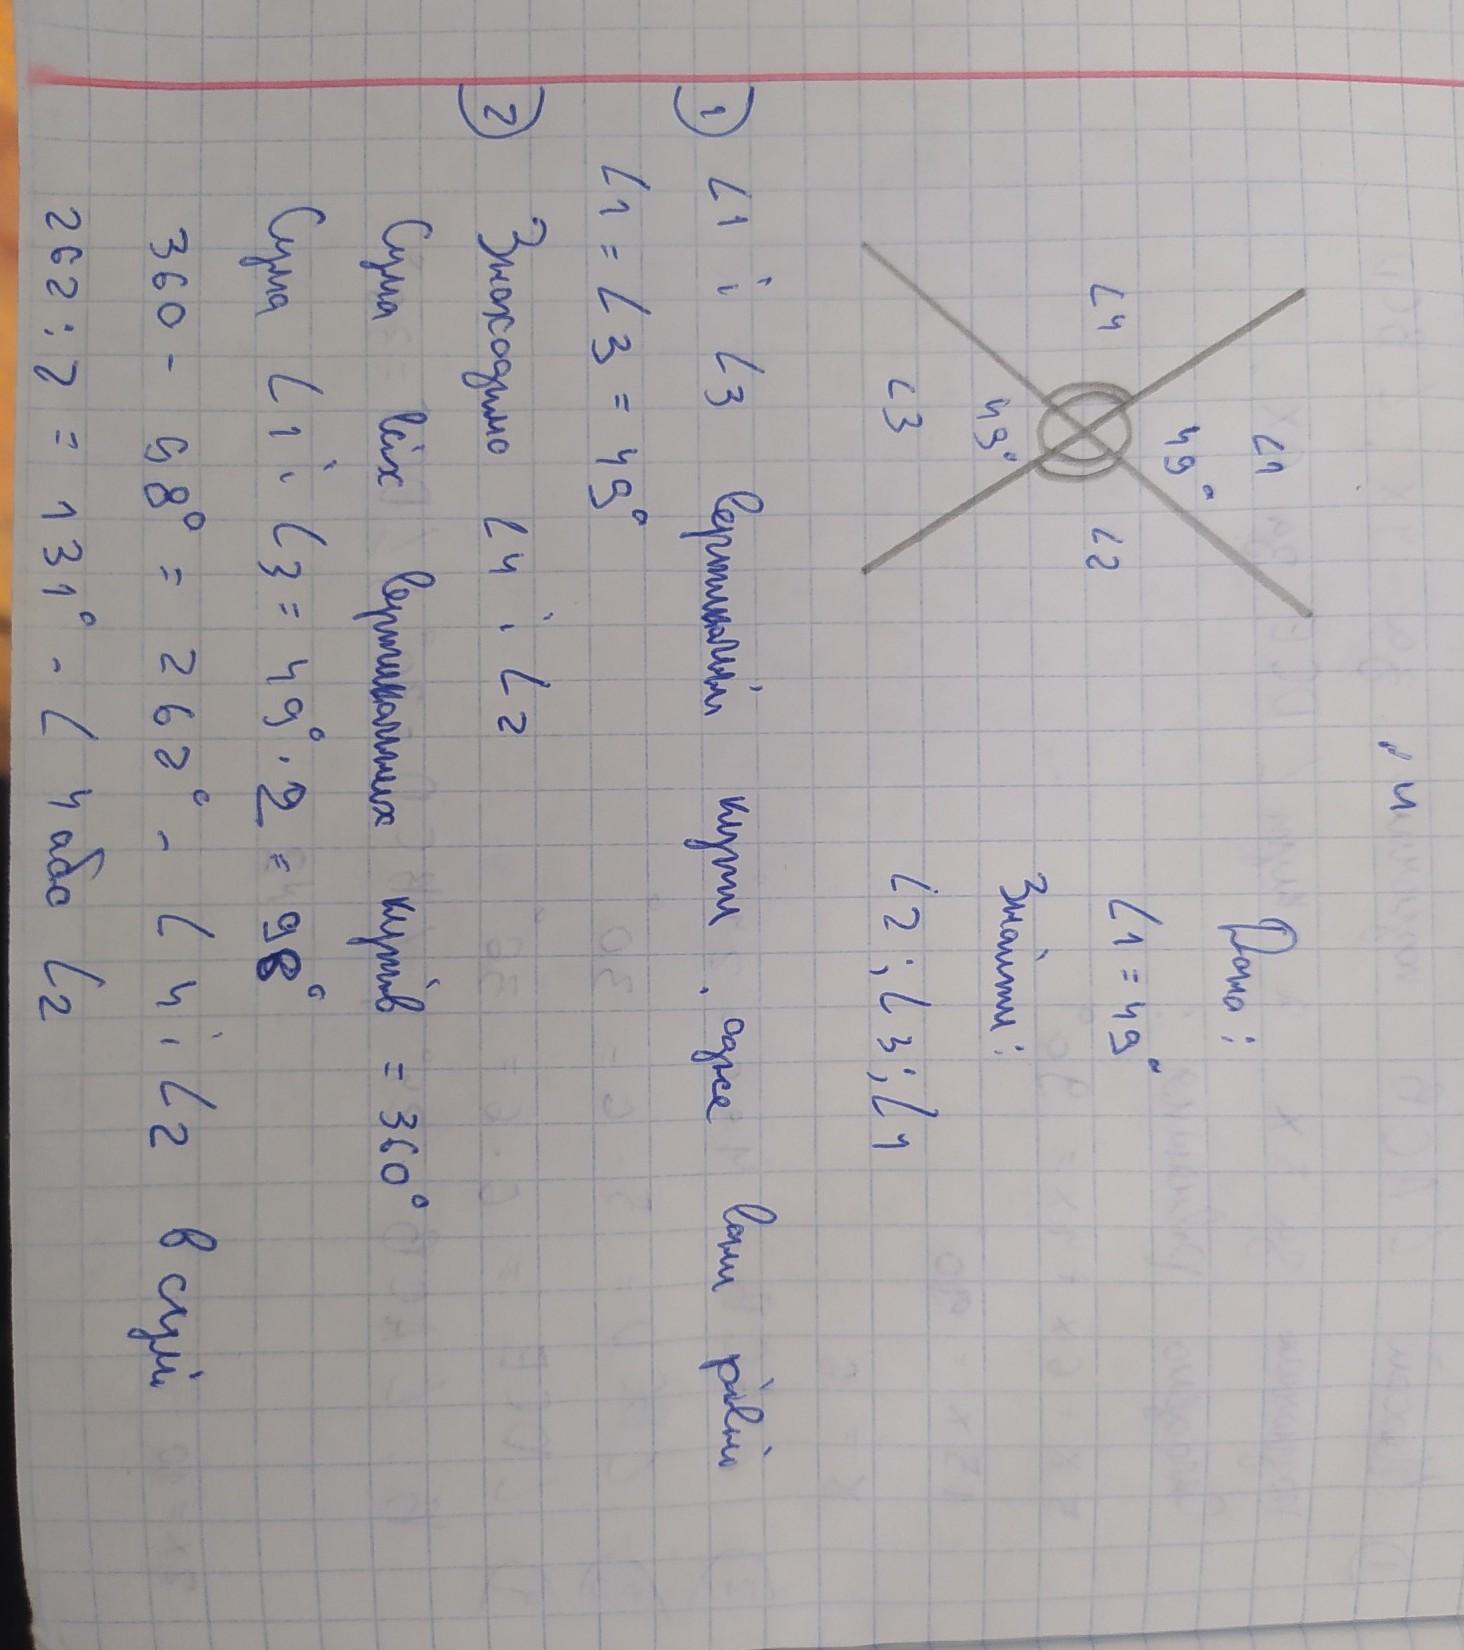 , и
∠1
49°
∠4
∠2
49°
∠3
Дано:
∠1 = 49°
Знайти:
∠2; ∠3; ∠4
1) ∠1 і ∠3 вертикальні кути, адже вони рівні
∠1 = ∠3 = 49°
2) Знаходимо ∠4 і ∠2
Сума всіх вертикальних кутів = 360°
Сума ∠1 і ∠3 = 49° · 2 = 98°
360 - 98° = 262° - ∠4 і ∠2 в сумі
262 : 2 = 131° - ∠4 або ∠2